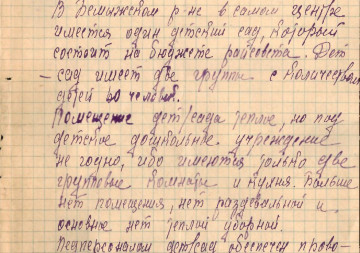 В Кемижском р-не в самом центре
имеется один детский сад, который
состоит на бюджете райсовета. Дет
- сад имеет две группы с количеством
детей 40 человек.
Помещение дет/сада теплое, но под
детское дошкольное учреждение
не годно, ибо имеются только две
групповые комнаты и кухня. Больше
нет помещения, нет раздевальной и
основное нет теплой уборной.
Педперсоналом дет/сад обеспечен прово-